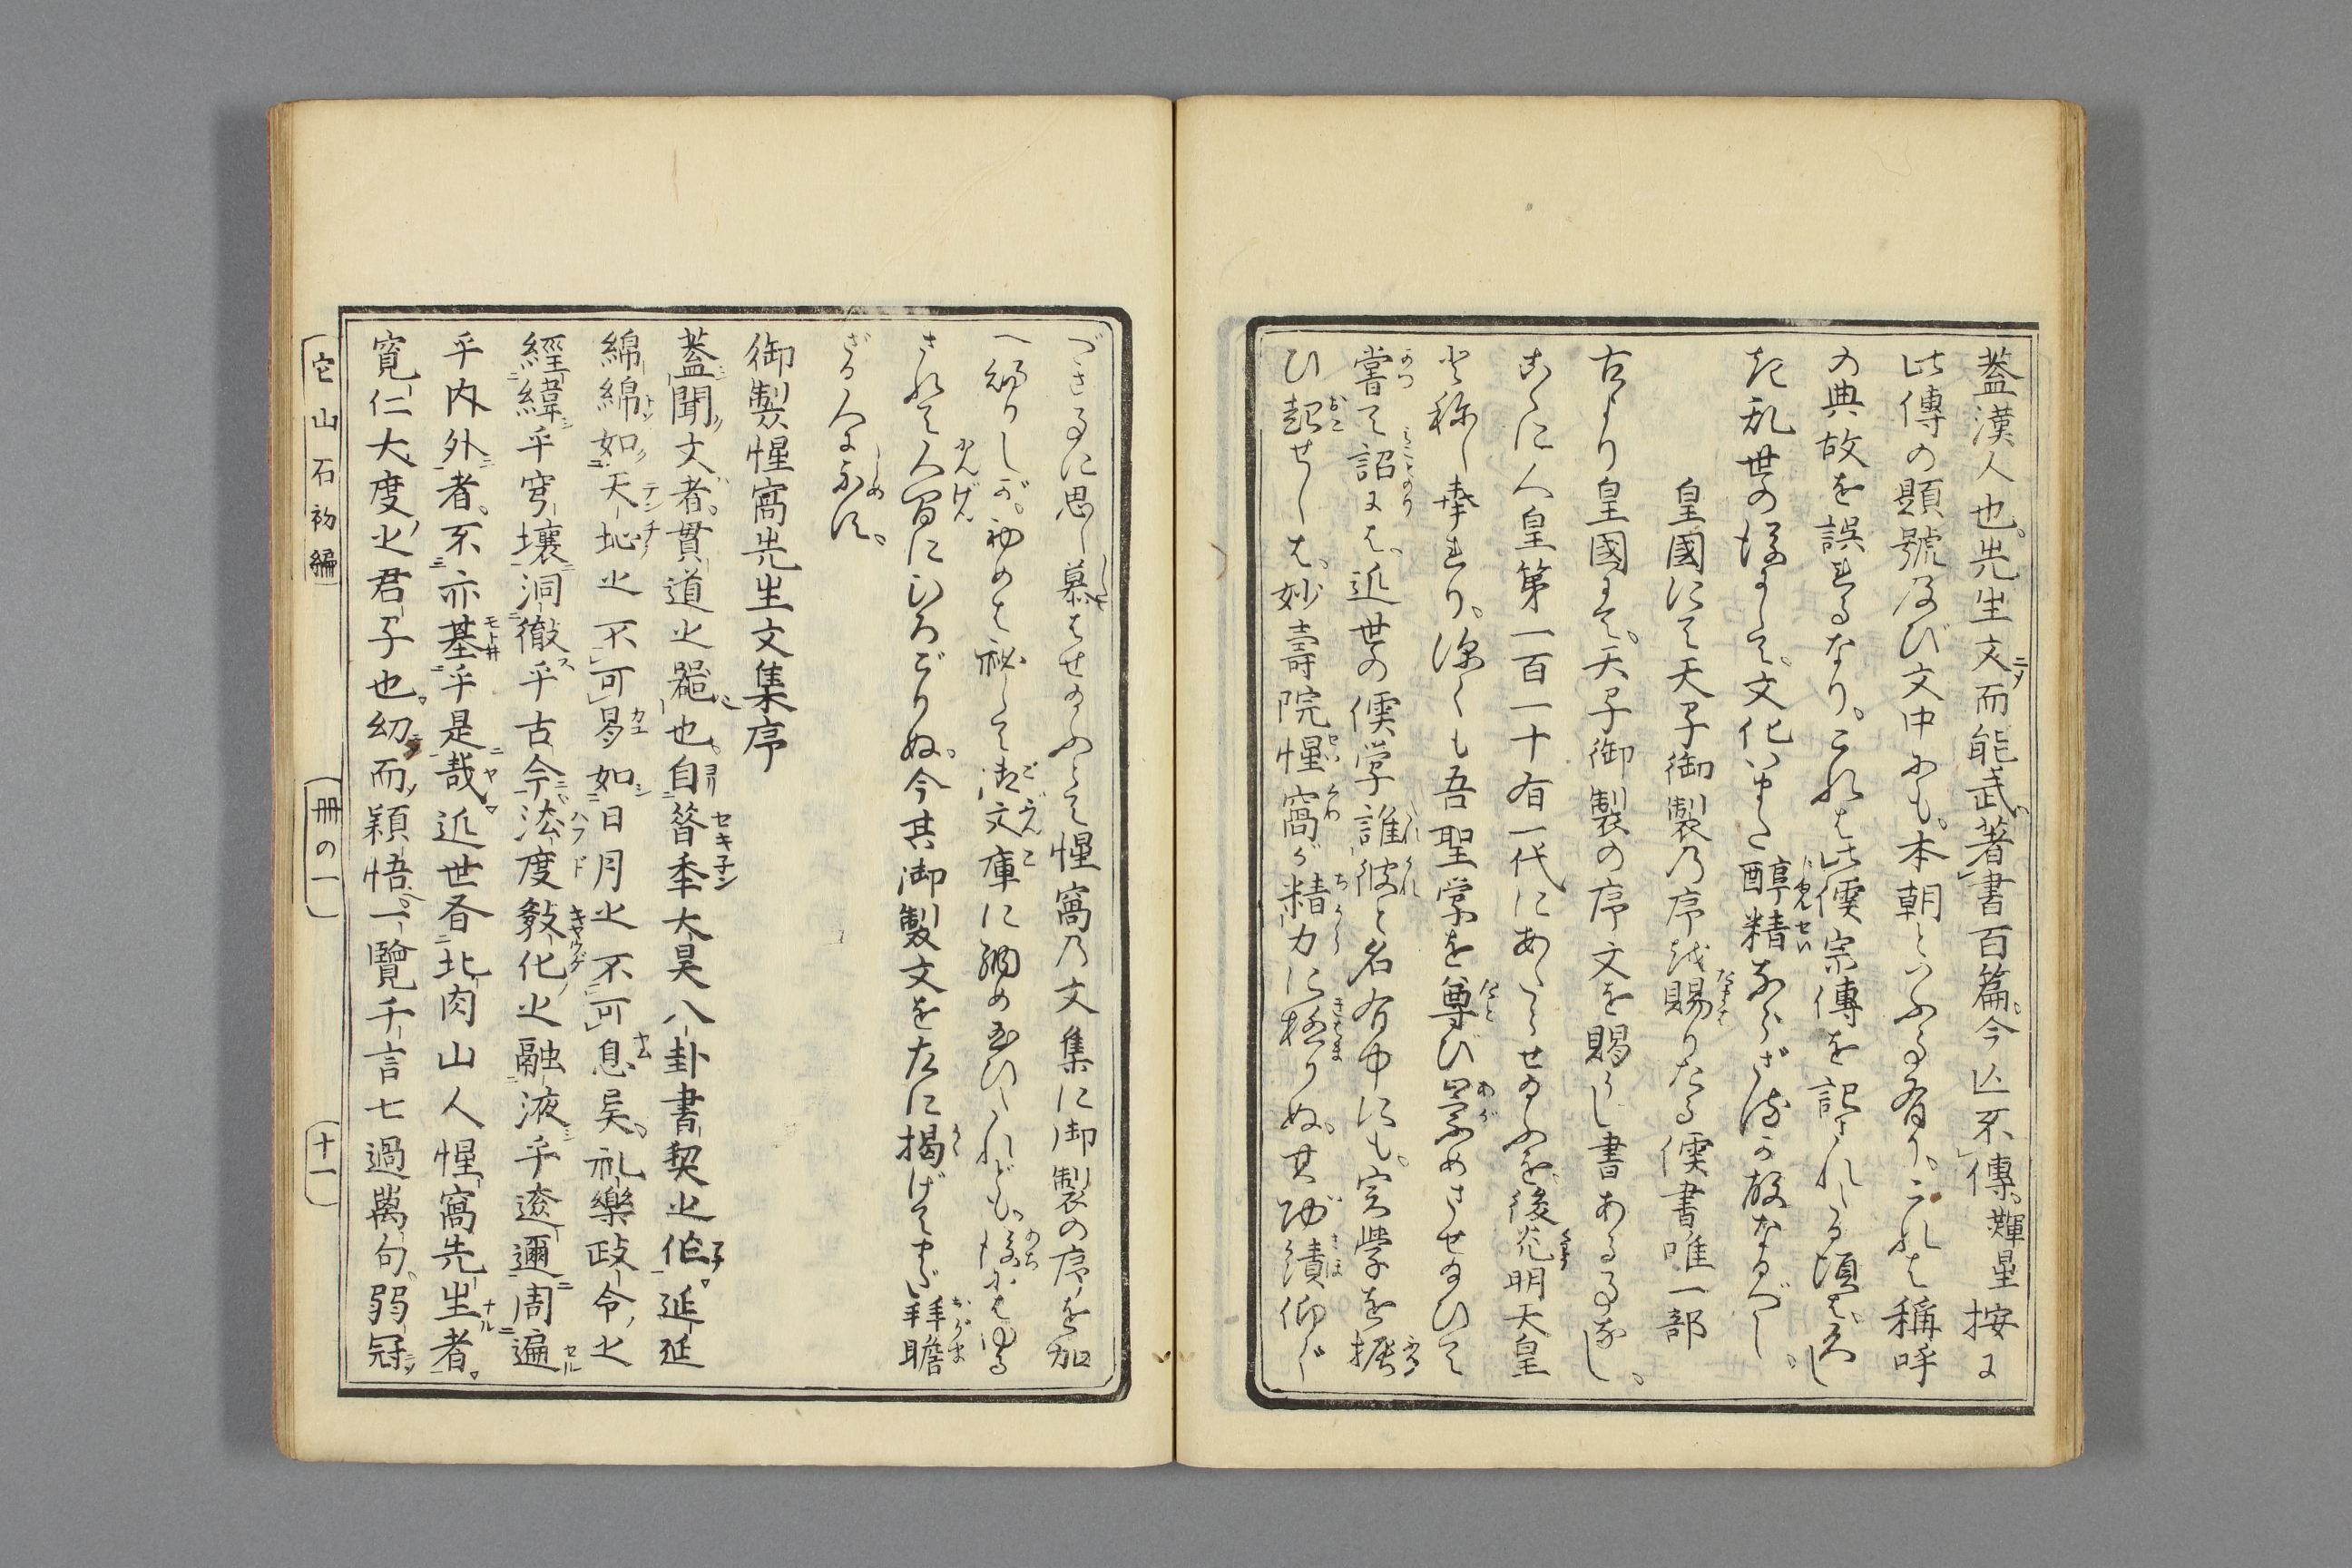 蓋漢人也。先生文而能武著書百篇。今亡不傳。輝星按に
此傳の題號及び文中にも。本朝といふ事有り。これは稱呼
の典故を誤れるなり。これは此儒宗傳を記されたる頃はひさし
き乱世の後にして。文化いまた醇精ならざるか故なるべし。
皇國にて天子御製乃序を賜りたる儒書唯一部
古より皇國にて。天子御製の序文を賜りし書ある事なし。
こゝに人皇第一百一十有一代にあたらせ給ふを。後光明天皇
と称し奉れり。深くも吾聖学を尊び崇めさせ給ひて
嘗て詔には。近世の儒学誰彼と名有中にも。実學を振
ひ起せしは。妙壽院惺窩が精力に極りぬ。其功績仰ぐ
べき事に思し慕はせ給ふとて惺窩乃文集に御製の序を加
へ賜りしが。初めは秘して御文庫に納め玉ひたれども。後にはゆる
されて人間にひろごりぬ。今其御製文を左に掲げてまだ拜瞻
ざる人に示す。
御製惺窩先生文集序
蓋聞文者。貫道之噐也。自昝秊大昊八卦書契之作。延延
綿綿如天地之不可昜如日月之不可息矣。礼樂政令之
經緯乎穹壤洞徹乎古今法度敎化之融液乎遼邇周遍
乎内外者。不亦基乎是哉。近世吝北肉山人惺窩先生者。
寛仁大度之君子也。幼而頴悟。一覽千言七過萬句。弱冠
它山石初編
冊の一
十一